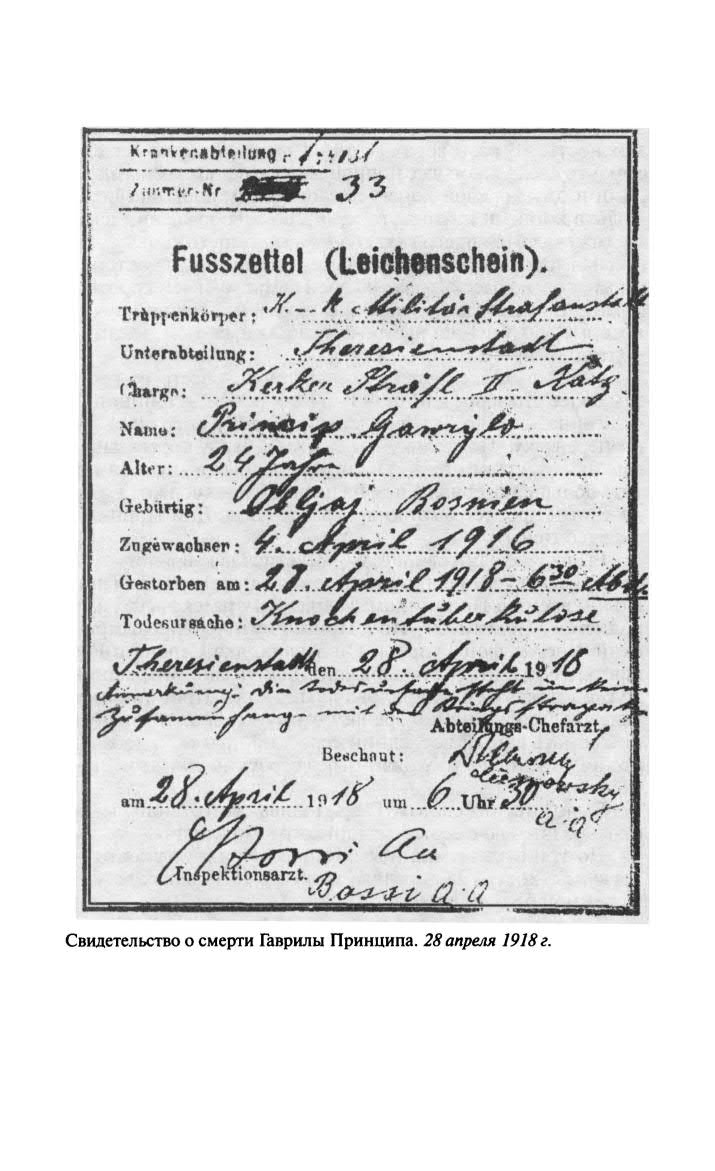 Krankenabteilung
Zimmer-Nr. 33
Fusszettel (Leichenschein).
Truppenkörper: K. K. Militär Strafanstalt
Unterabteilung: Theresienstadt
Charge: Kerker Sträfl II Katg
Name: Princip Gawrylo
Alter: 24 Jahre
Gebürtig: Obljaj Bosnien
Zugewachsen: 4. April 1916
Gestorben am: 28. April 1918 - 6 30 Abd.
Todesursache: Knochentuberkulose
Theresienstadt den 28. April 1918
Anmerkung: Die Todesursache steht in kein
Zusammenhange mit
Abteilungs-Chefarzt.
Beschaut:
am 28. April 1918 um 6 Uhr 30
Inspektionsarzt.
Bossi a.a
Свидетельство о смерти Гаврилы Принципа. 28 апреля 1918 г.